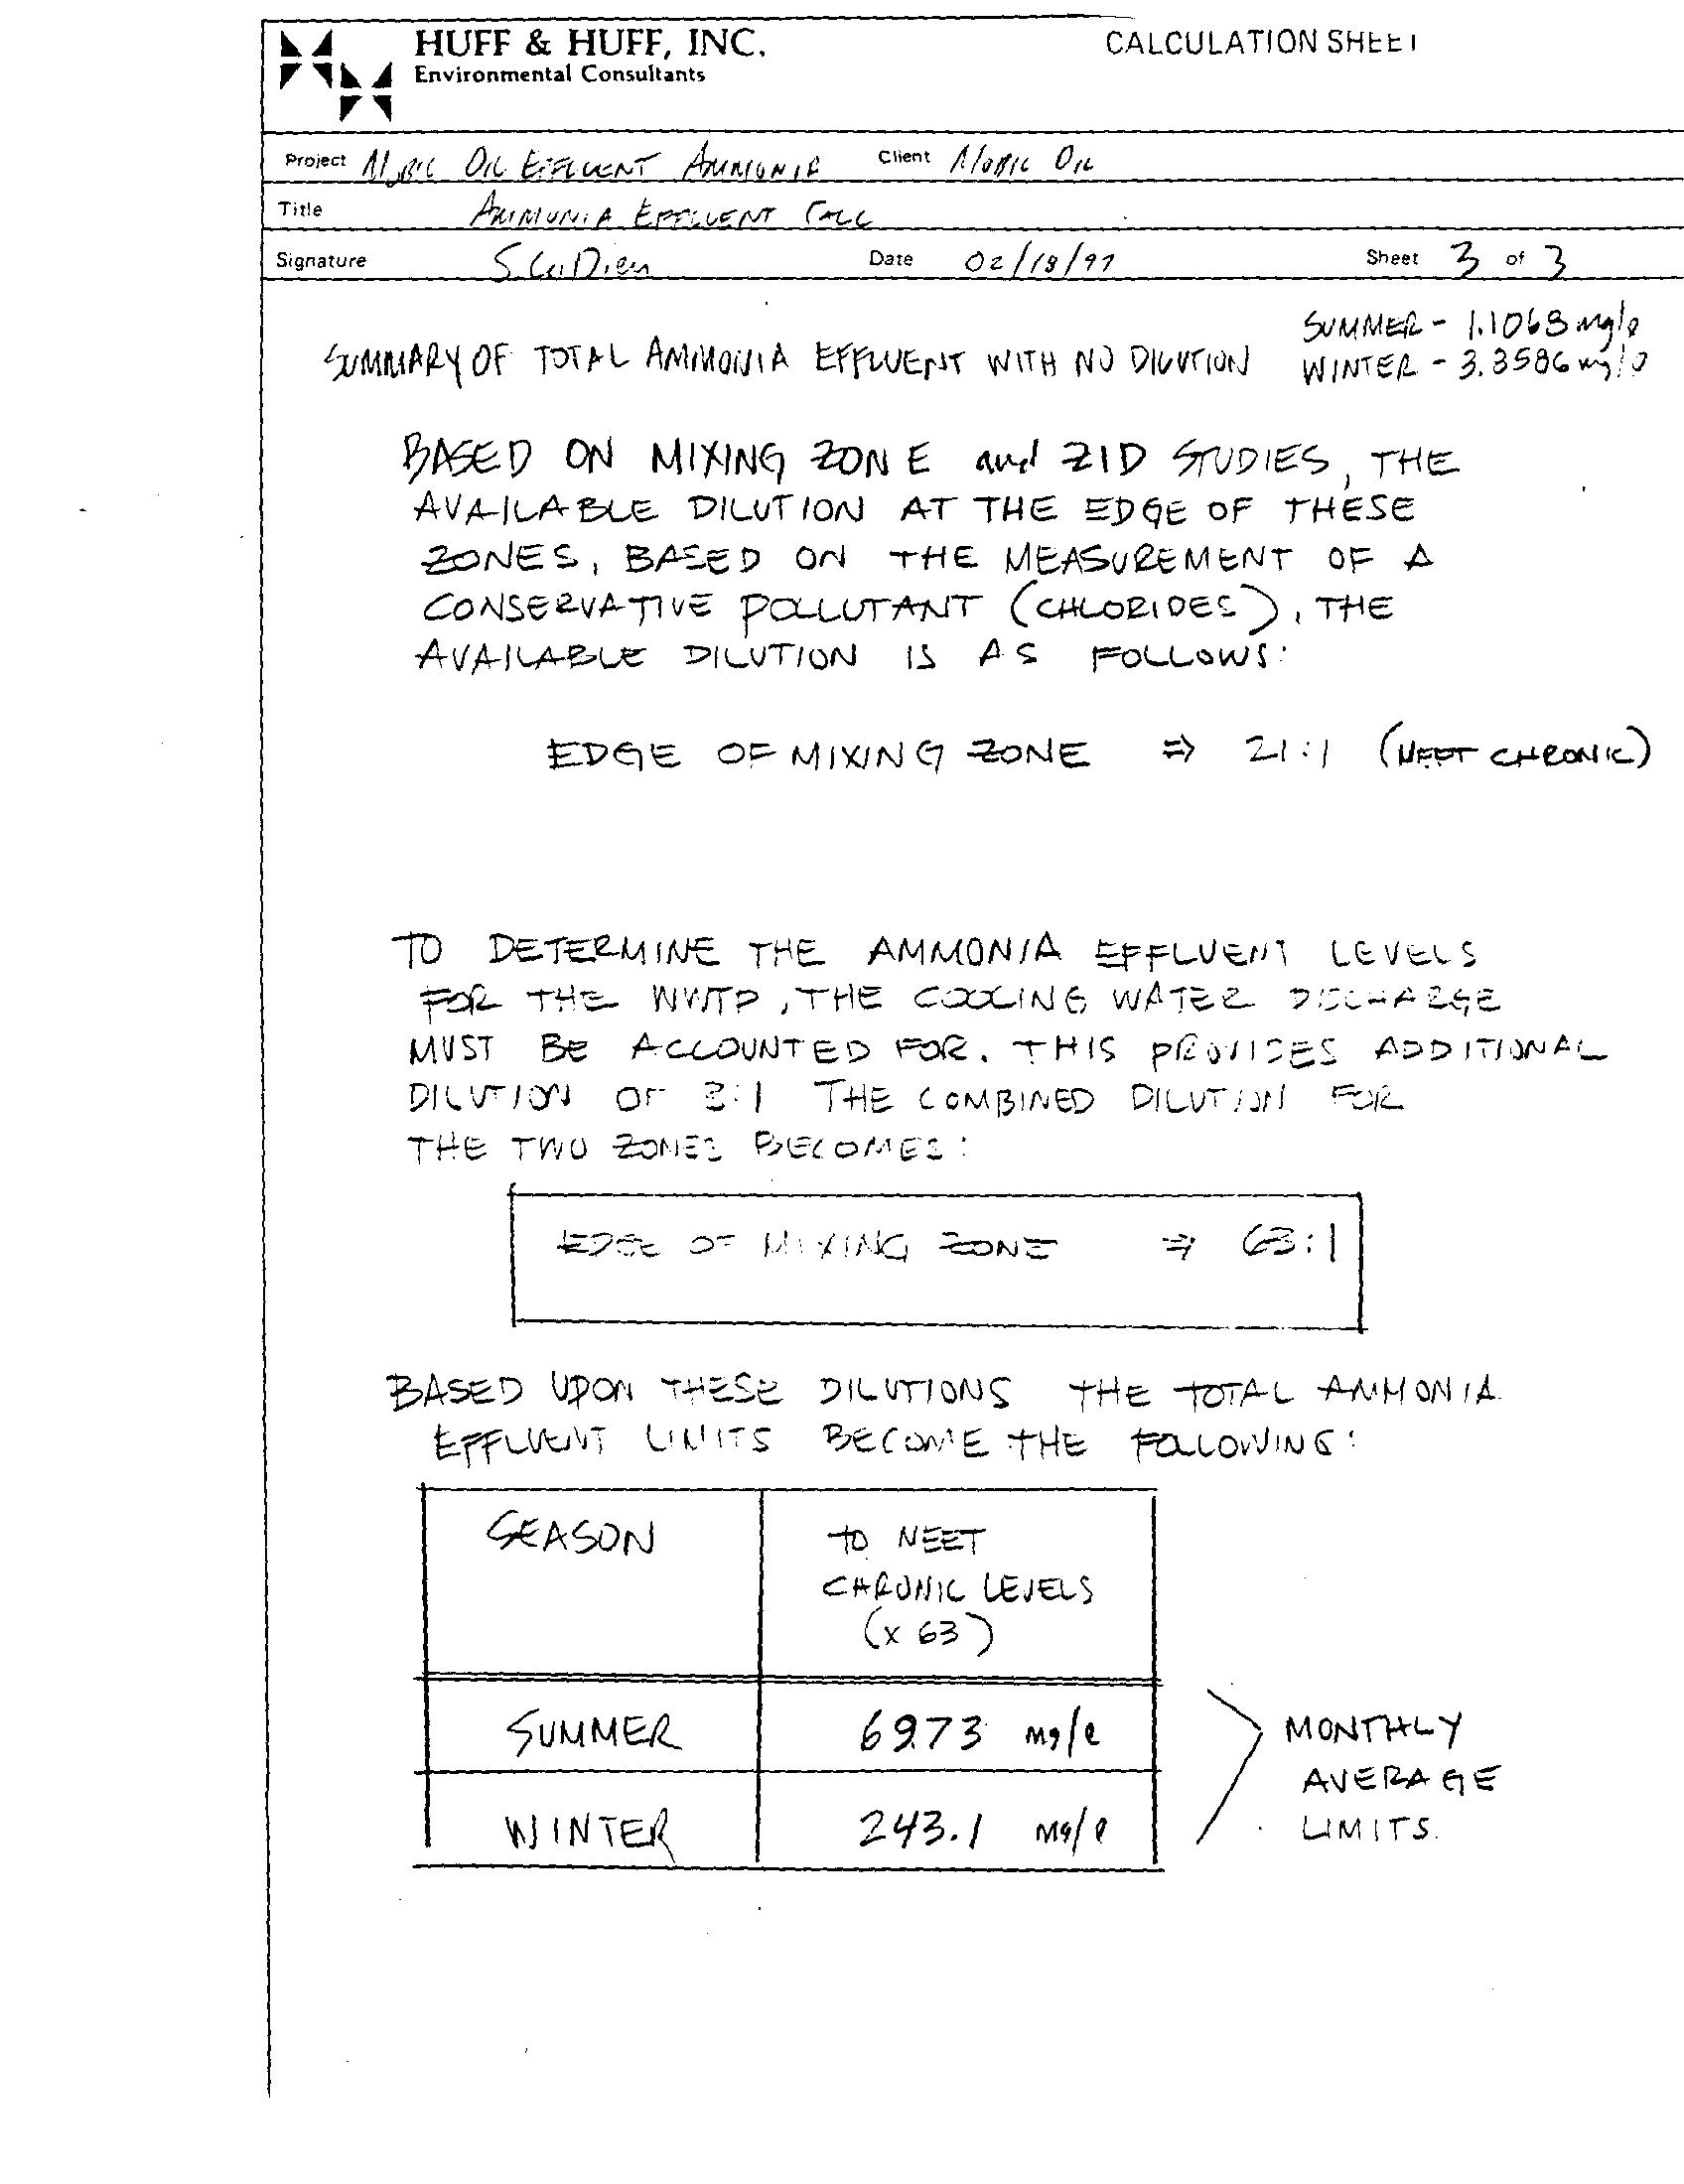 HUFF & HUFF, INC.
Environmental Consultants
CALCULATION SHEET
Project MOBIL OIL EFFLUENT AMMONIA Client MOBIL OIL
Title AMMONIA EFFLUENT CALC
Signature Date 02/18/97 Sheet 3 of 3
SUMMARY OF TOTAL AMMONIA EFFLUENT WITH NO DILUTION
SUMMER - 1.1068 mg/l
WINTER - 3.8586 mg/l
BASED ON MIXING ZONE and ZID STUDIES, THE
AVAILABLE DILUTION AT THE EDGE OF THESE
ZONES, BASED ON THE MEASUREMENT OF A
CONSERVATIVE POLLUTANT (CHLORIDES), THE
AVAILABLE DILUTION IS AS FOLLOWS:
EDGE OF MIXING ZONE ⇒ 21:1 (MEET CHRONIC)
TO DETERMINE THE AMMONIA EFFLUENT LEVELS
FOR THE WWTP, THE COOLING WATER DISCHARGE
MUST BE ACCOUNTED FOR. THIS PROVIDES ADDITIONAL
DILUTION OF 3:1 THE COMBINED DILUTION FOR
THE TWO ZONES BECOMES:
EDGE OF MIXING ZONE ⇒ 63:1
BASED UPON THESE DILUTIONS THE TOTAL AMMONIA
EFFLUENT LIMITS BECOME THE FOLLOWING:
SEASON
TO MEET
CHRONIC LEVELS
(x 63)
SUMMER 69.73 mg/l
WINTER 243.1 mg/l
MONTHLY
AVERAGE
LIMITS.